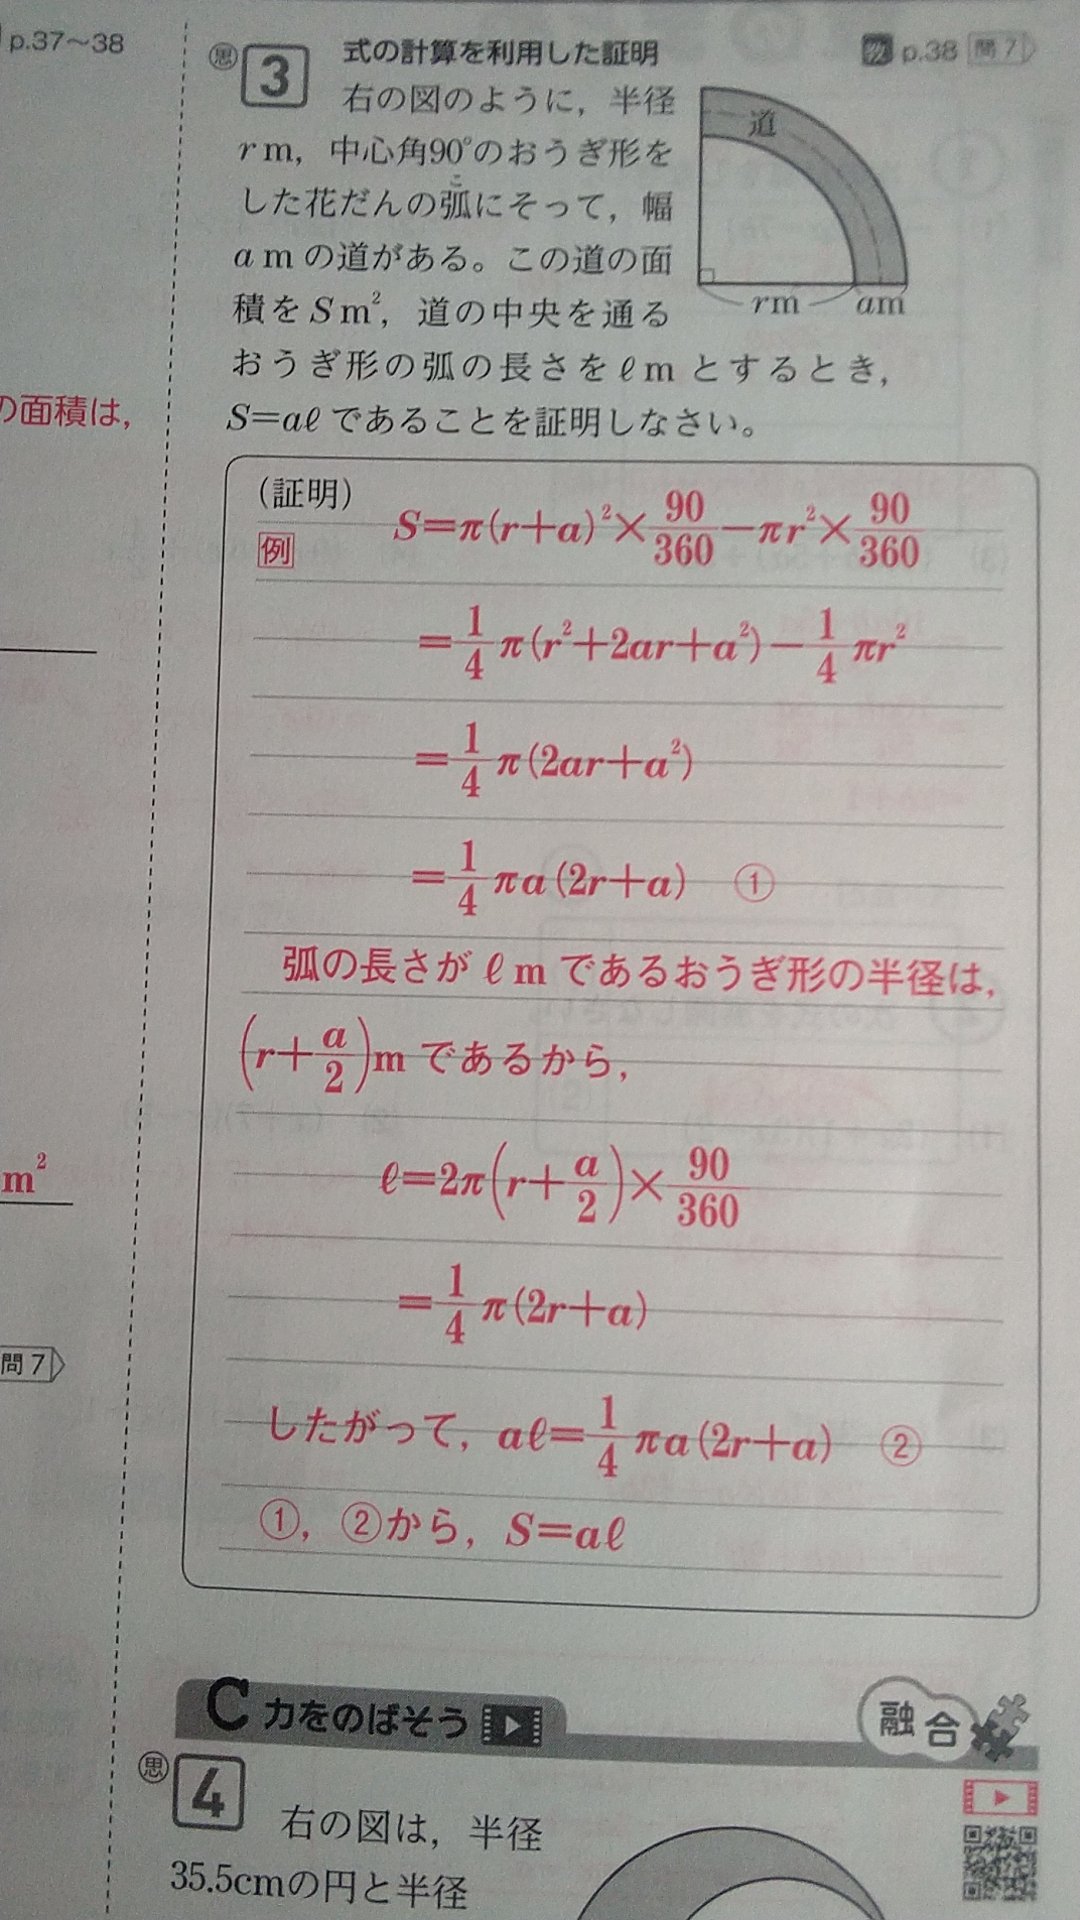 p.37〜38
思 3 式の計算を利用した証明
p.38 問7
右の図のように，半径
r m，中心角90°のおうぎ形を
した花だんの弧にそって，幅
こ
a m の道がある。この道の面
積を S m²，道の中央を通る
おうぎ形の弧の長さを ℓ m とするとき，
S＝aℓ であることを証明しなさい。
道
r m
a m
の面積は，
m²
問7
（証明）
例
S＝π(r＋a)²×90/360－πr²×90/360
＝1/4 π(r²＋2ar＋a²)－1/4 πr²
＝1/4 π(2ar＋a²)
＝1/4 πa(2r＋a) ①
弧の長さが ℓ m であるおうぎ形の半径は，
(r＋a/2)m であるから，
ℓ＝2π(r＋a/2)×90/360
＝1/4 π(2r＋a)
したがって，aℓ＝1/4 πa(2r＋a) ②
①，②から，S＝aℓ
C 力をのばそう
融合
思 4 右の図は，半径
35.5cmの円と半径